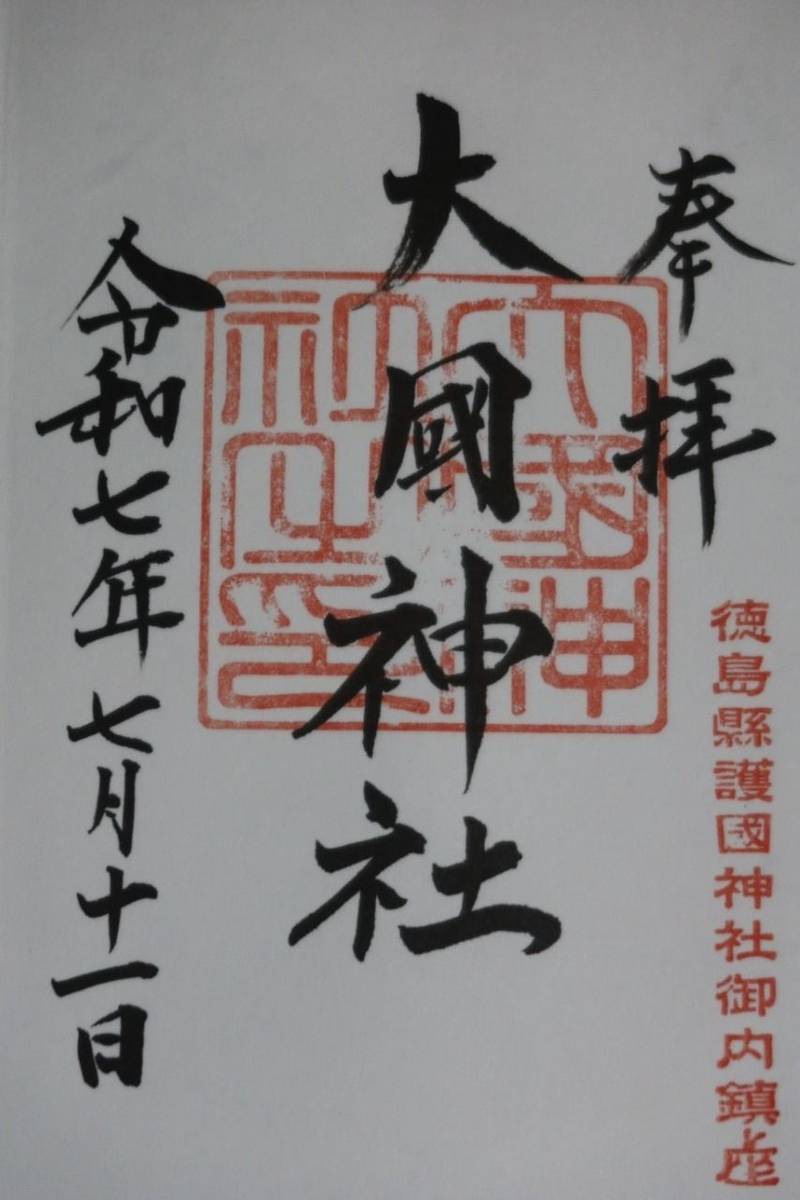 奉拝
徳島縣護國神社御内鎮座
大國神社
大國神社之印
令和七年七月十一日